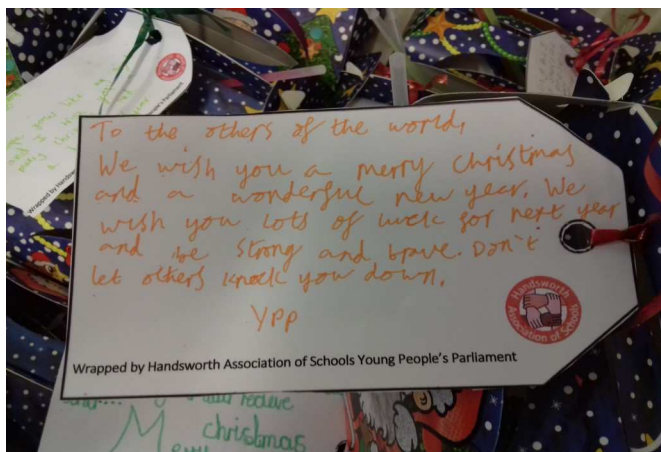 To the others of the world,
We wish you a merry Christmas
and a wonderful new year. We
wish you lots of luck for next year
and be strong and brave. Don't
let others knock you down.
YPP
Handsworth
Association of Schools
Wrapped by Handsworth Association of Schools Young People's Parliament
recieve
christmas
People's Parliament
Wrapped by Handsworth